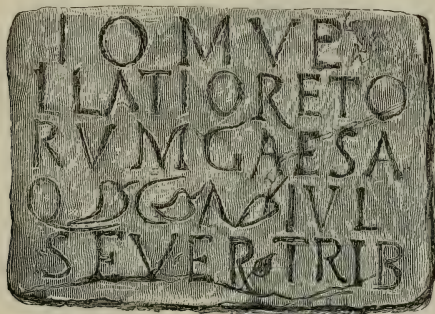 I O M VE
LLATIO RETO
RVM GAESA
IVL
SEVER TRIB